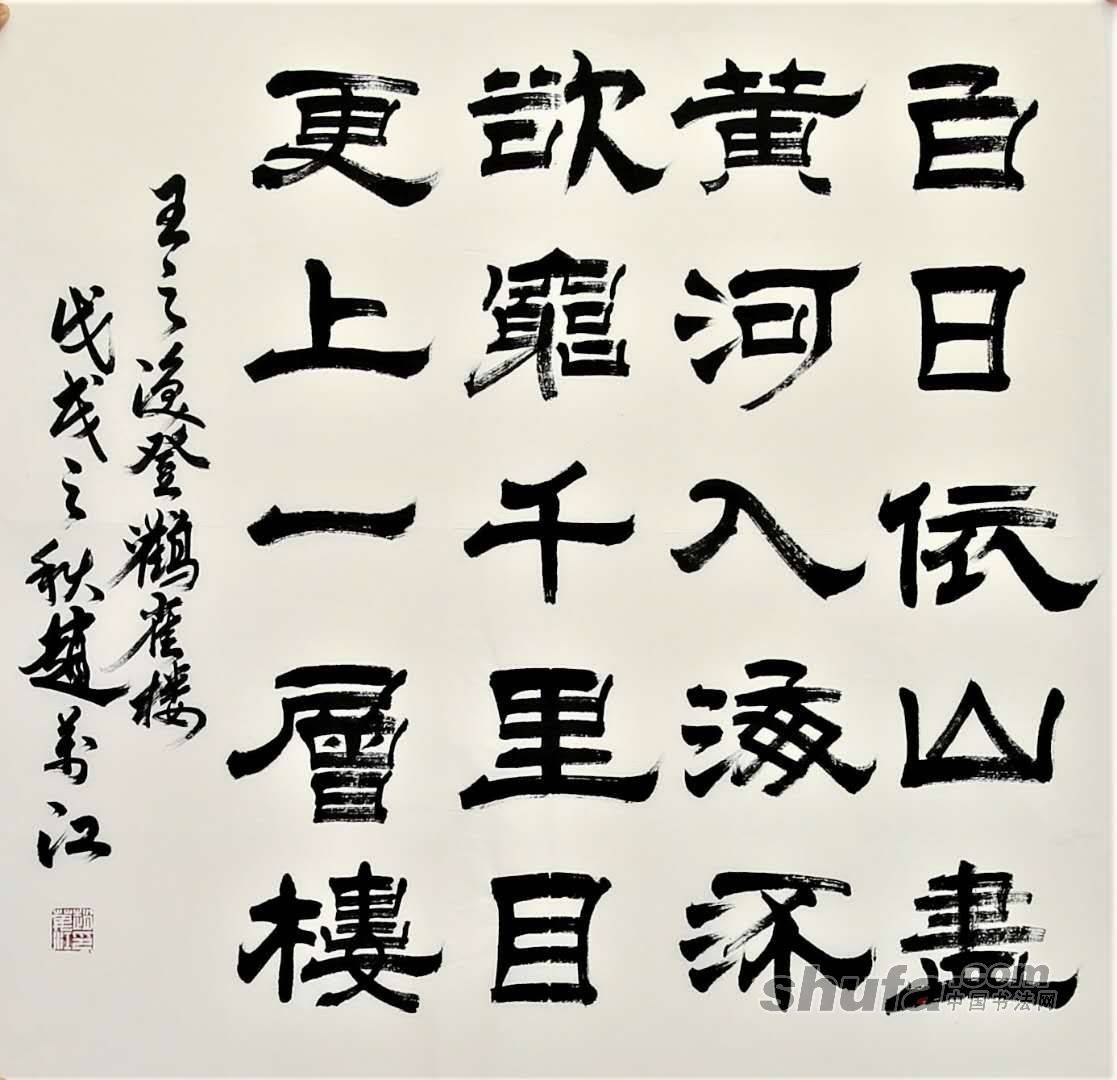 白日依山盡
黄河入海流
欲窮千里目
更上一層樓
王之渙登鸛雀楼
戊戌之秋趙萬江
shufa.com
中国书法网